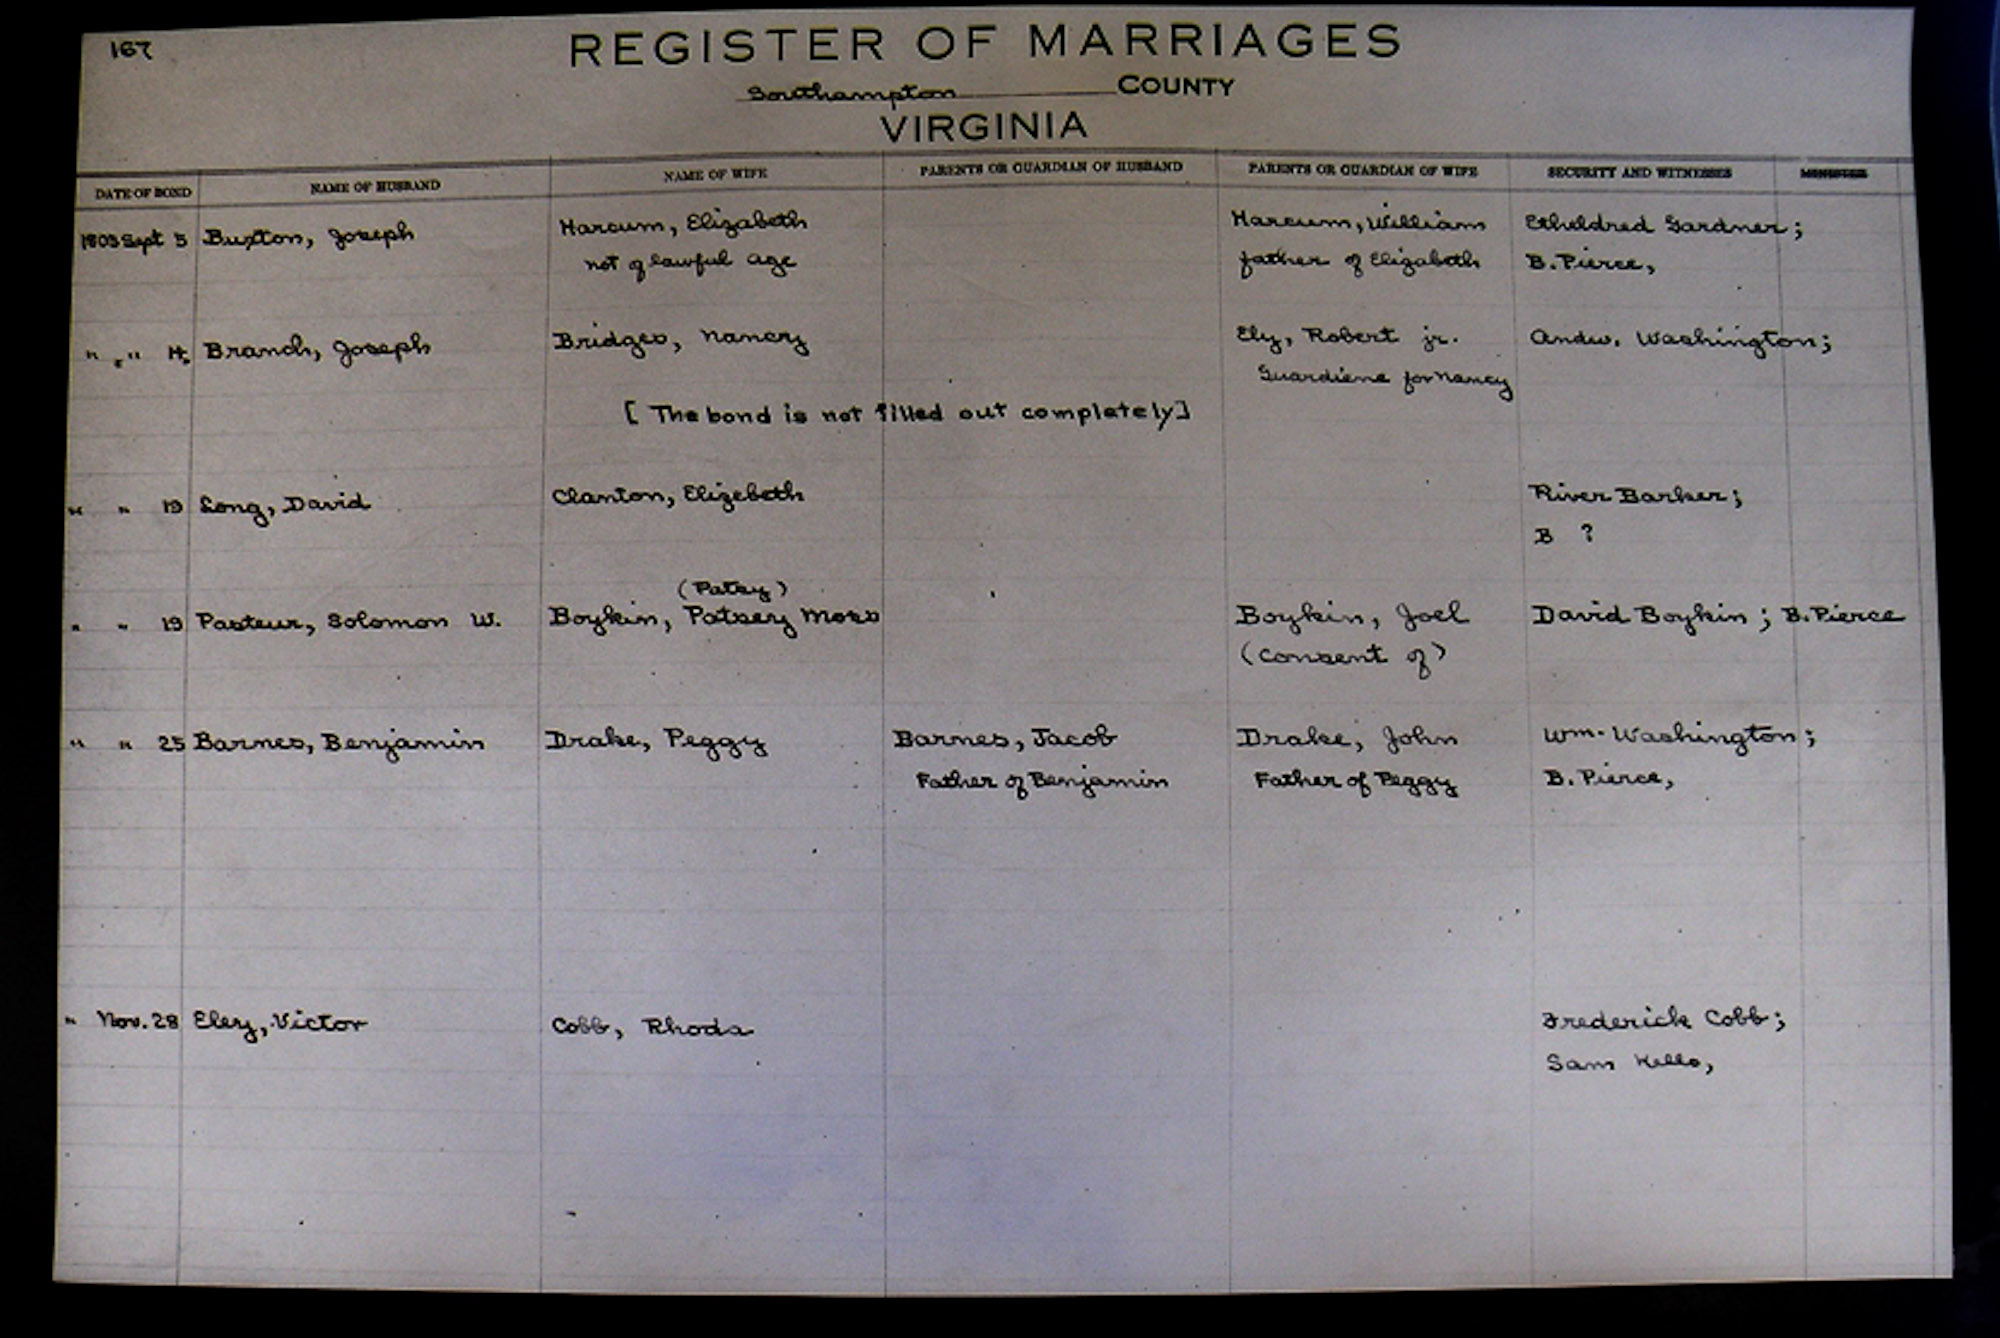 167
REGISTER OF MARRIAGES
Southampton COUNTY
VIRGINIA
DATE OF BOND NAME OF HUSBAND NAME OF WIFE PARENTS OR GUARDIAN OF HUSBAND PARENTS OR GUARDIAN OF WIFE SECURITY AND WITNESSES MINISTER
1803 Sept 5 Buxton, Joseph Harcum, Elizabeth Harcum, William Etheldred Gardner;
not of lawful age father of Elizabeth B. Pierce,
" " 14 Branch, Joseph Bridges, Nancry Ely, Robert jr. Andw. Washington;
Guardiene for Nancy
[ The bond is not filled out completely]
" " 19 Long, David Clanton, Elizebeth River Barker;
B ?
(Patsy)
" " 19 Pasteur, Solomon W. Boykin, Patsery Moss Boykin, Joel David Boykin; B. Pierce
(Consent of)
" " 25 Barnes, Benjamin Drake, Peggy Barnes, Jacob Drake, John Wm. Washington;
Father of Benjamin Father of Peggy B. Pierce,
" Nov. 28 Eley, Victor Cobb, Rhoda Frederick Cobb;
Sam Kello,